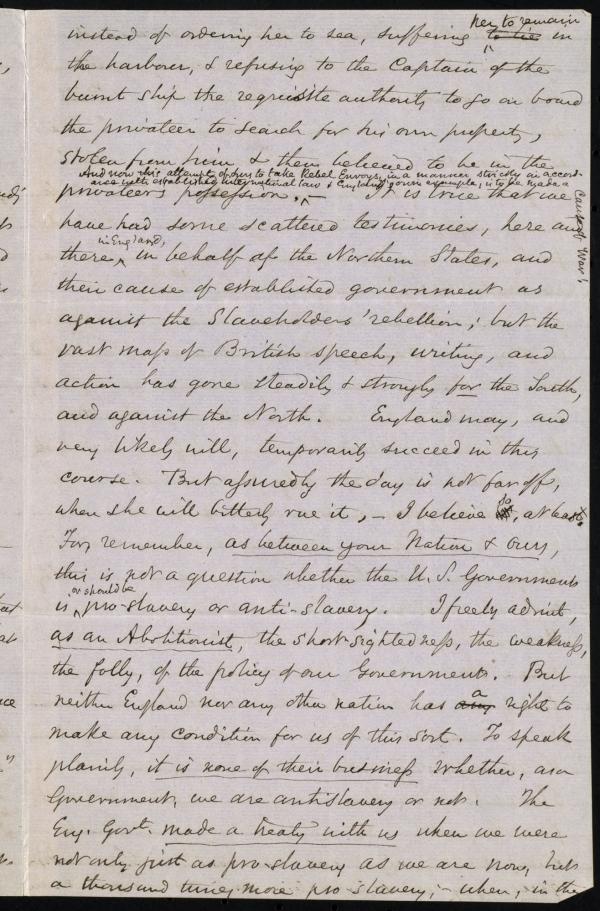 her to remain
instead of ordering her to sea, suffering to lie in
the harbour, & refusing to the Captain of the
burnt ship the requisite authority to go on board
the privateer to search for his own property,
stolen from him & then believed to be in the
And now this attempt of ours to take Rebel Envoys, in a manner strictly in accord-
ance with established international law & England's own example, is to be made a
Cause of War!
privateer's possession. – It is true that we
have had some scattered testimonies, here and
in England,
there, in behalf of the Northern States, and
their cause of established government as
against the Slaveholders' rebellion; but the
vast mass of British speech, writing, and
action has gone steadily & strongly for the South,
and against the North. England may, and
very likely will, temporarily succeed in this
course. But assuredly the day is not far off,
when she will bitterly rue it, – I believe so, at least.
For, remember, as between your Nation & ours,
this is not a question whether the U. S. Government
or should be
is pro-slavery or anti-slavery. I freely admit,
as an Abolitionist, the short-sightedness, the weakness,
the folly, of the policy of our Government. But
neither England nor any other nation has any a right to
make any condition for us of this sort. To speak
plainly, it is none of their business whether, as a
Government, we are antislavery or not. The
Eng. Govt. made a treaty with us when we were
not only just as pro-slavery as we are now, but
a thousand times more pro slavery; – when, in the